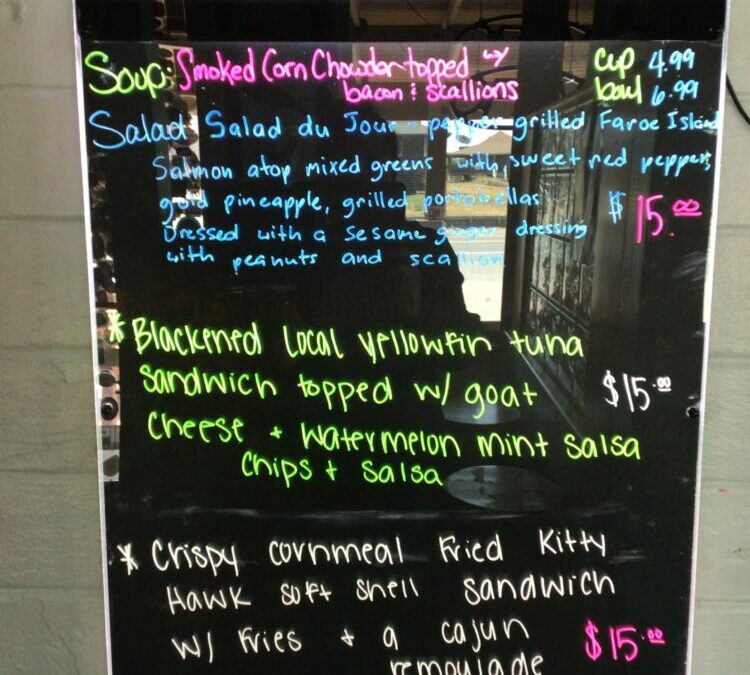 Soup: Smoked Corn Chowder topped w/ cup 4.99
bacon & scallions bowl 6.99
Salad Salad du Jour - pepper grilled Faroe Island
Salmon atop mixed greens with sweet red peppers,
gold pineapple, grilled portobellas $15.00
Dressed with a sesame ginger dressing
with peanuts and scallions
* Blackened Local yellowfin tuna
Sandwich topped w/ goat $15.00
Cheese + watermelon mint salsa
Chips + Salsa
* Crispy cornmeal fried Kitty
Hawk soft shell sandwich
w/ fries + a cajun $15.00
remoulade